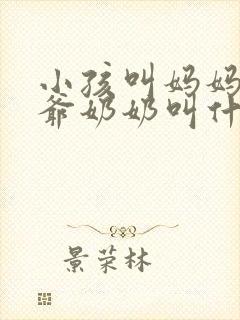 小孩叫妈妈
爺奶奶叫什
景荣林